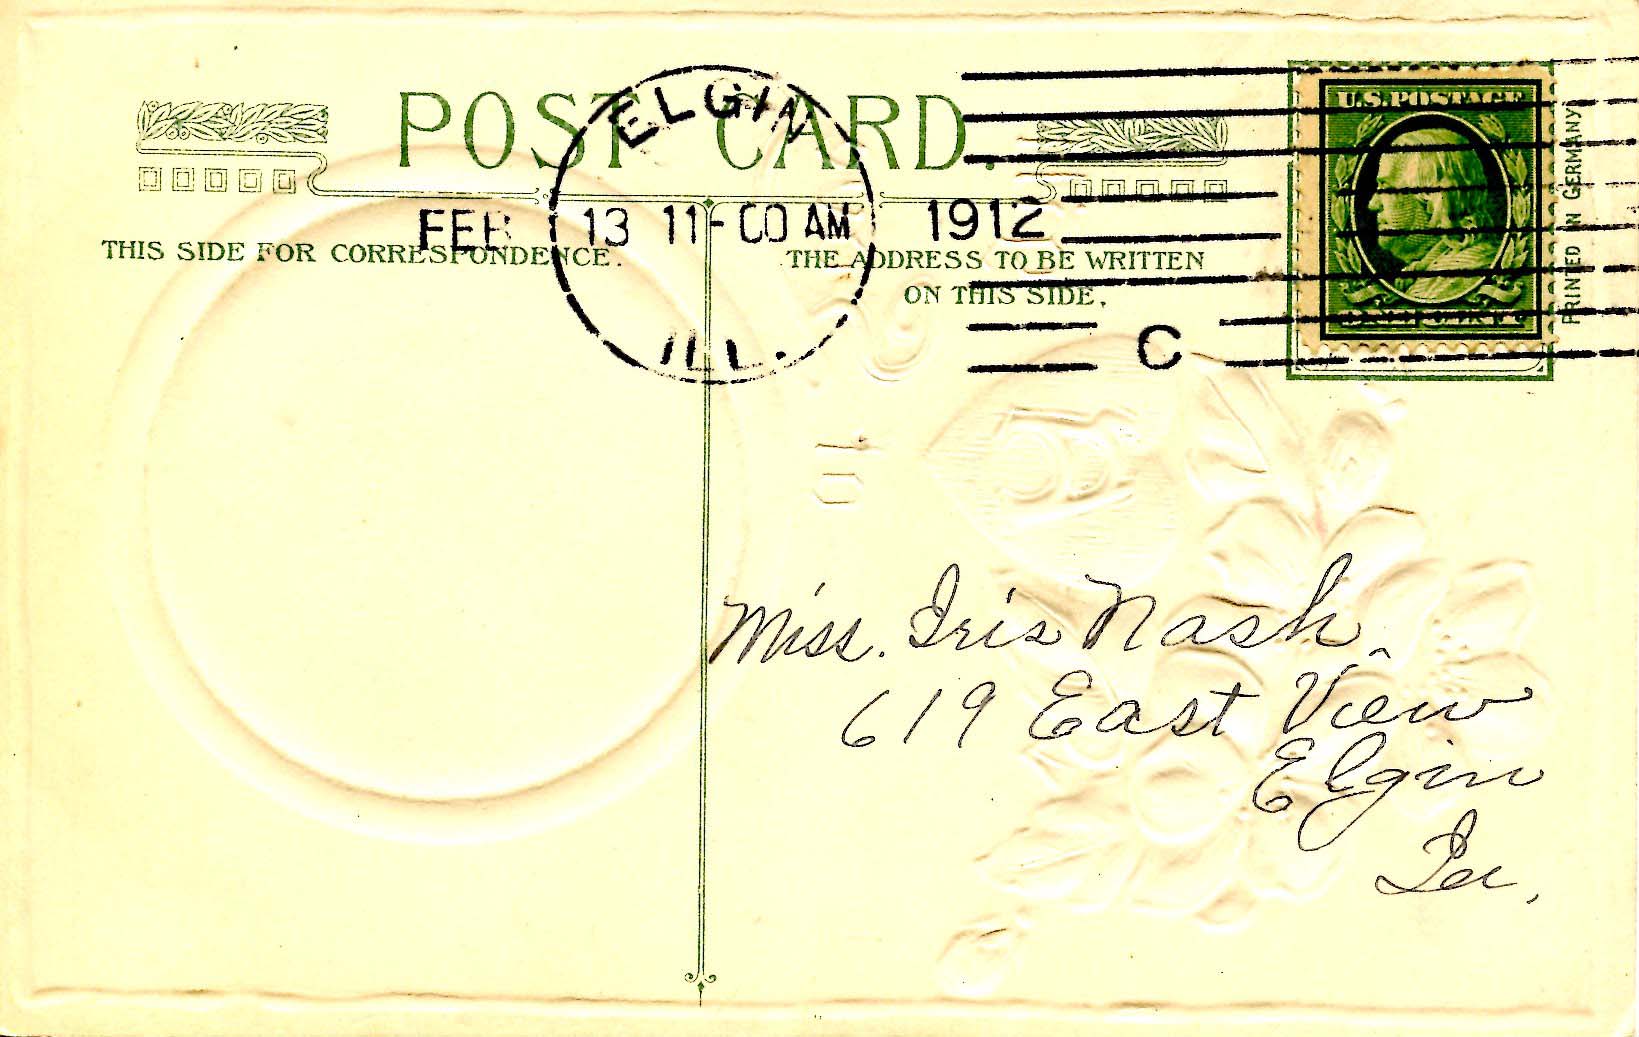 POST CARD.
ELGIN
ILL.
FEB 13 11-00 AM 1912
C
U.S. POSTAGE
PRINTED IN GERMANY
THIS SIDE FOR CORRESPONDENCE.
THE ADDRESS TO BE WRITTEN
ON THIS SIDE.
Miss. Iris Nash
619 East View
Elgin